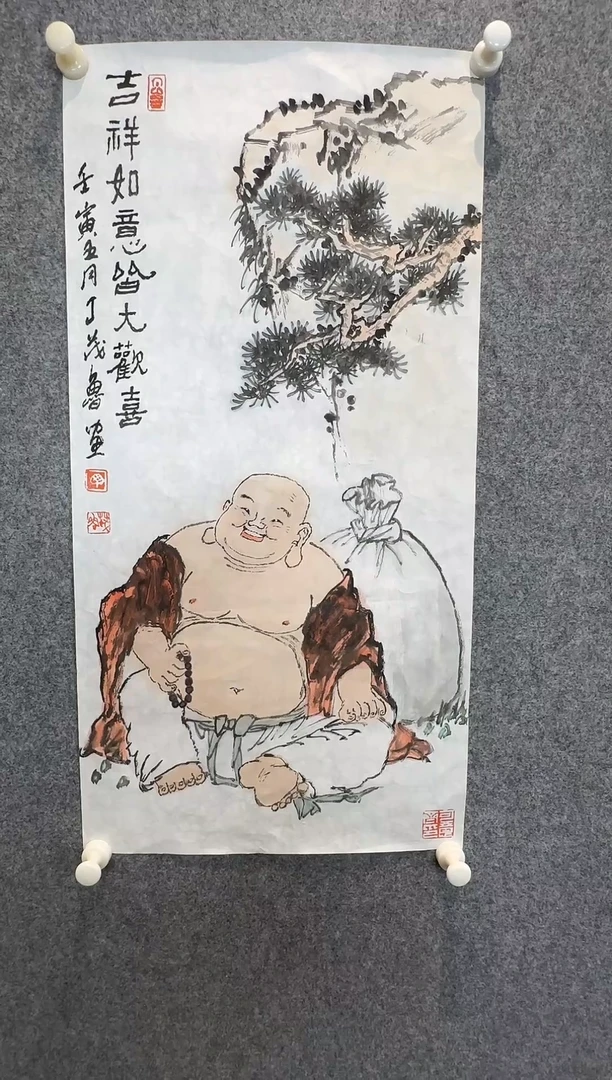 吉祥如意皆大歡喜
壬寅五月丁茂魯画